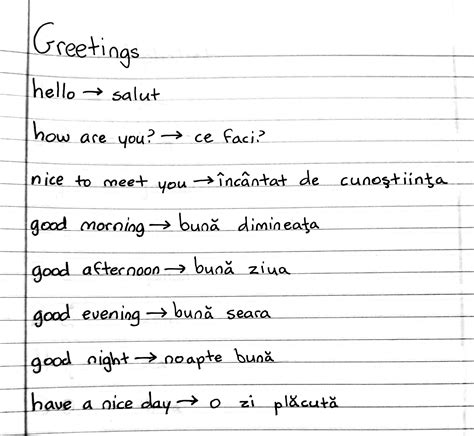 Greetings
hello → salut
how are you? → ce faci?
nice to meet you → încântat de cunoştiinţa
good morning → bună dimineaţa
good afternoon → bună ziua
good evening → bună seara
good night → noapte bună
have a nice day → o zi plăcută